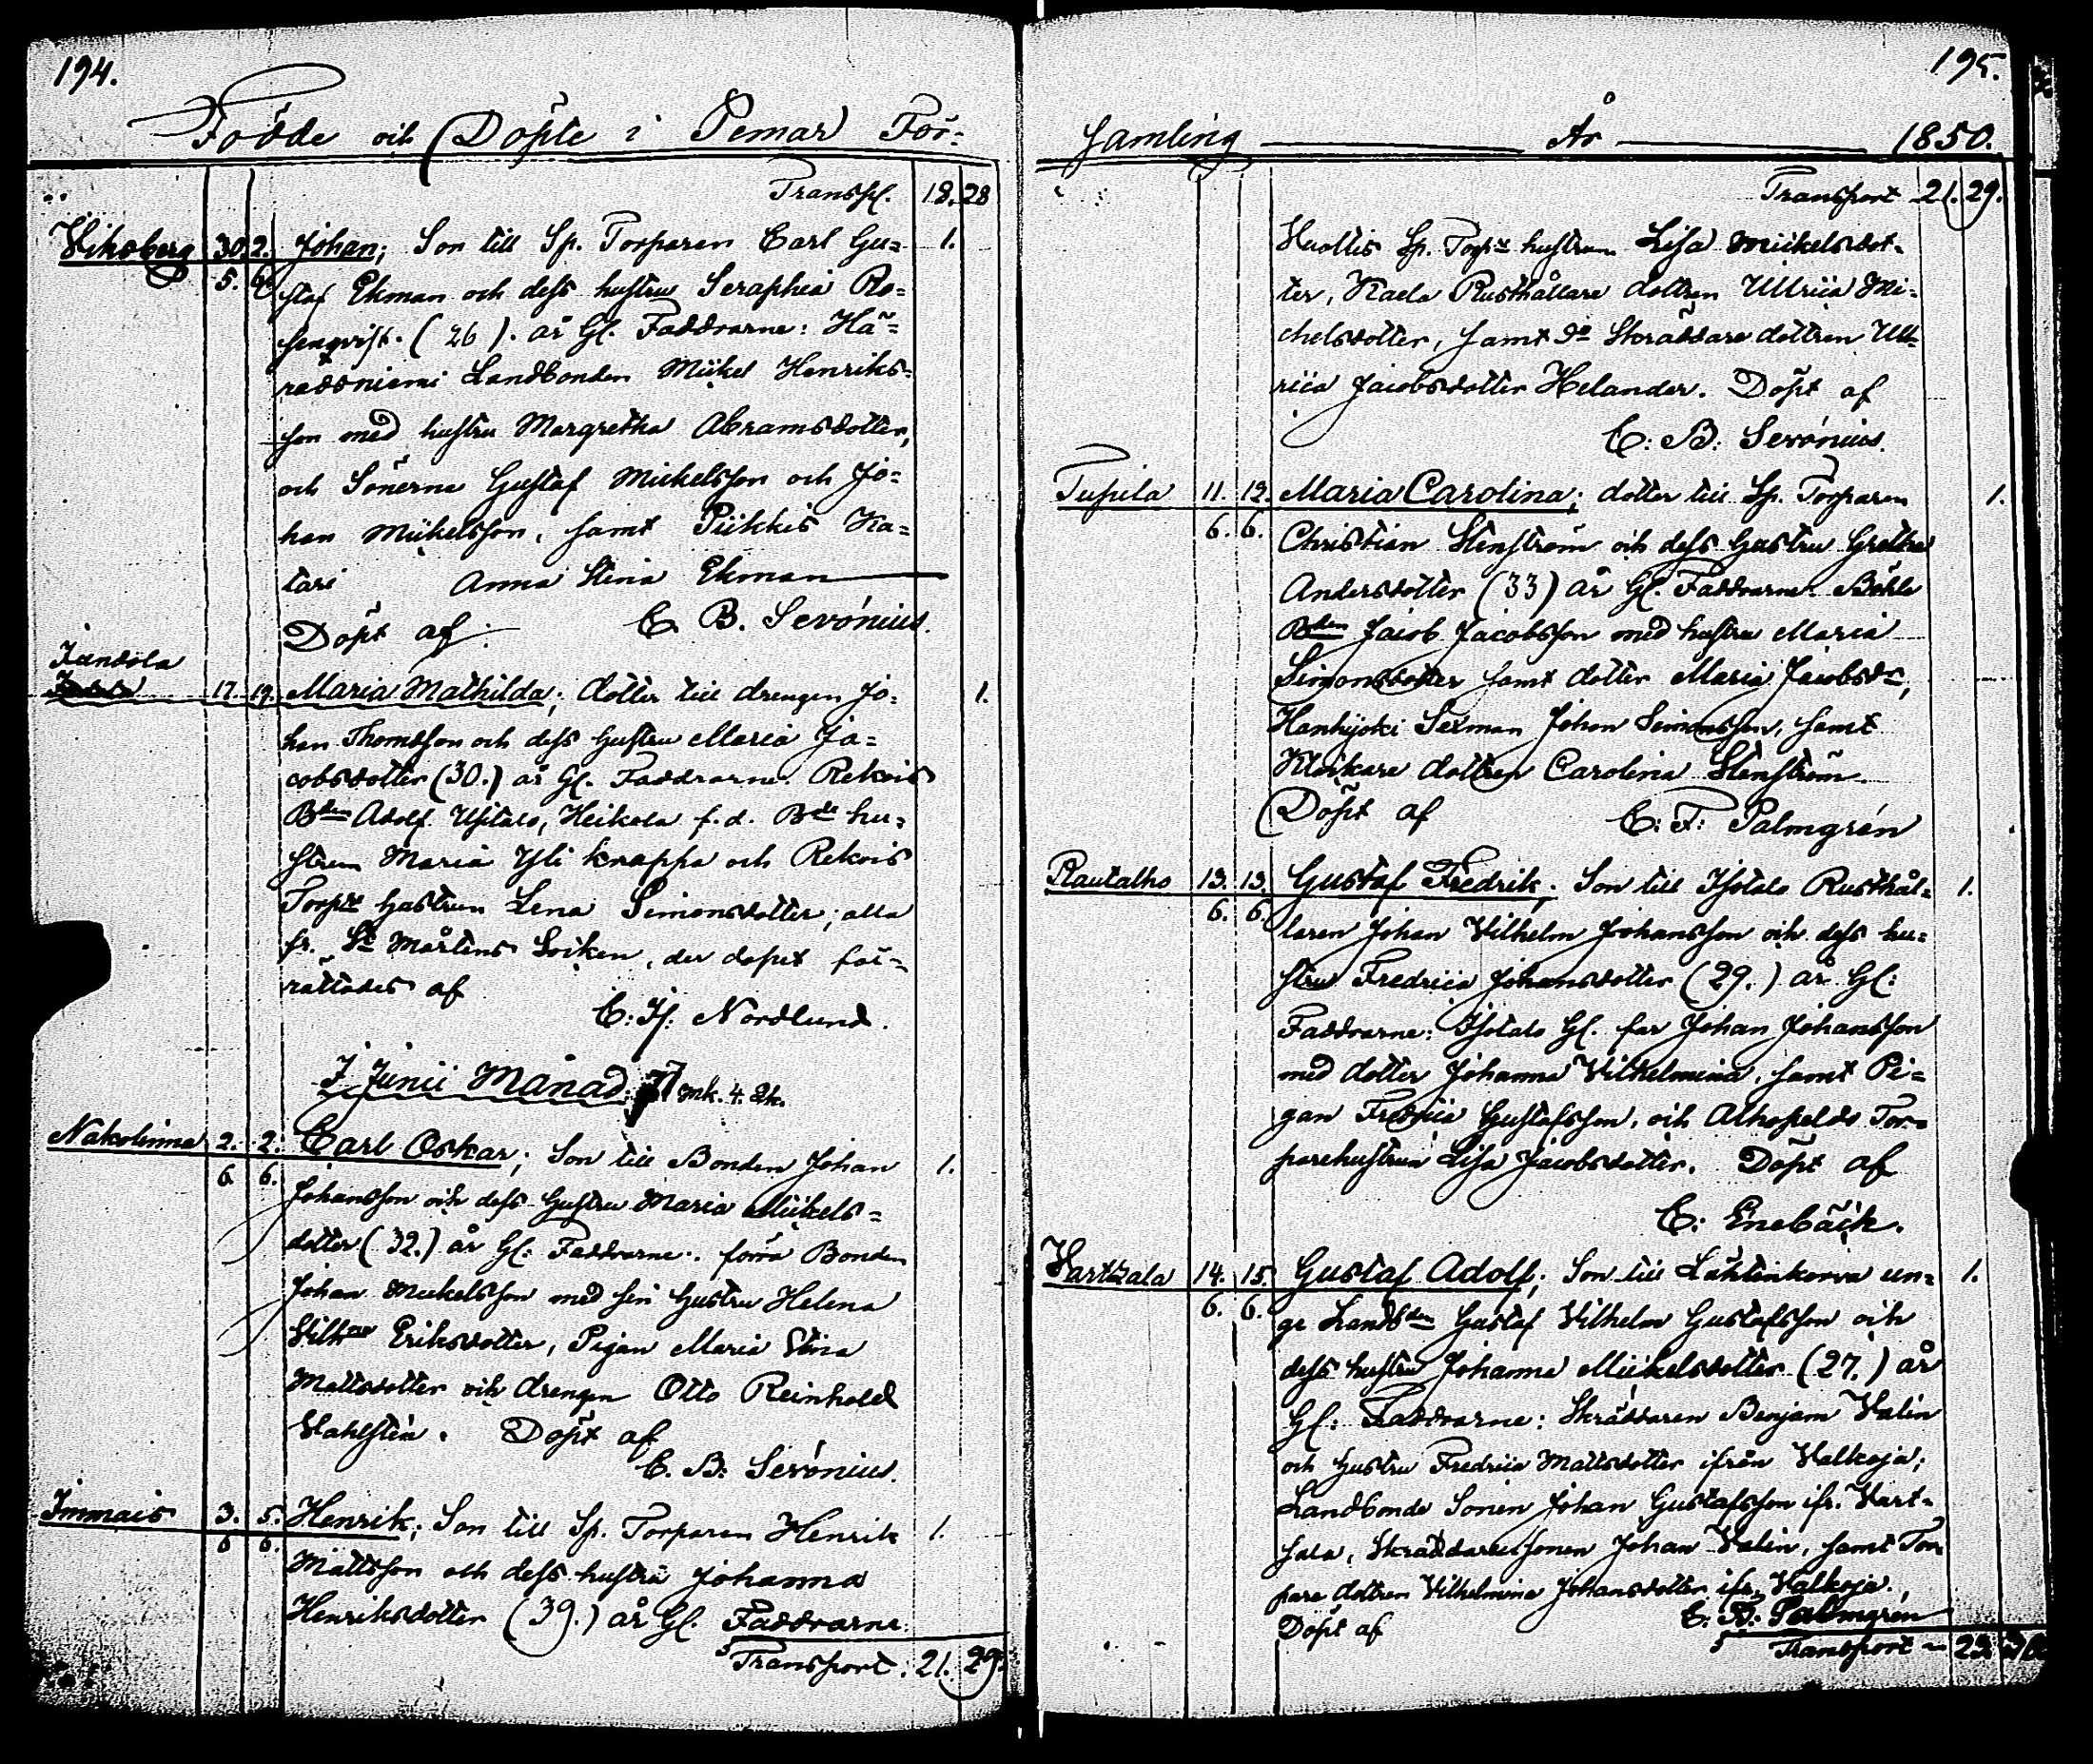 194.
Födde och Döpte i Pemar För=
Transp. 18. 28
Vikoberg 30. 2. Johan; Son till Sp. Torparen Carl Gu= 1.
5. 6. staf Ekman och dess hustru Seraphia Ro=
senqvist. (26). år Gl. Faddrarne: Hä=
radsniemi Landbonden Mickel Henriks=
son med hustru Margretha Abramsdotter,
och Sönerne Gustaf Mickelsson och Jo=
han Mickelsson, samt Piikkis Ka=
tari Anna Stina Ekman
Döpt af: C. B. Serónius.
Kandola
17. 19. Maria Mathilda; dotter till drengen Jo= 1.
han Thomasson och dess hustru Maria Ja=
cobsdotter (30.) år Gl. Faddrarne. Rekois
Bden Adolf Ustalo, Heikola f.d. Bde hu=
strun Maria Yli Knappa och Rekois
Torpre hustrun Lena Simonsdotter; alla
fr. St Mårtens Socken, der dopet för=
rättades af
C. H. Nordlund.
I Junii Månad. 7 mk. 4. Qk.
Nakolinna 2. 2. Carl Oskar; Son till Bonden Johan 1.
6. 6. Johansson och dess hustru Maria Mickels=
dotter (32.) år Gl: Faddrarne: förra Bonden
Johan Mickelsson med sin hustru Helena
Eriksdotter, Pigan Maria Stina
Mattsdotter och drengen Otto Reinhold
Vahlstén. Döpt af
C. B. Serónius.
Immais 3. 5. Henrik; Son till Sp. Torparen Henrik 1.
6 6. Mattsson och dess hustru Johanna
Henriksdotter (39.) år Gl. Faddrarne:
Transport. 21. 29.
195.
samling År 1850.
Transport 21. 29.
Huottis Sp. Torpre hustrun Lisa Mickelsdot=
ter, Kaela Rusthållare dottren Ullrica Mi=
chelsdotter, samt do Skräddare dottren Ull=
rica Jacobsdotter Helander. Döpt af
C. B. Serónius.
Tupila 11. 12. Maria Carolina; dotter till Sp. Torparen 1.
6. 6. Christian Stenström och dess hustru Gretha
Andersdotter (33) år Gl. Faddrarne. Böhle
Bden Jacob Jacobsson med hustru Maria
Simonsdotter samt dotter Maria Jacobsdr,
Hanhijoki Sexman Johan Simonsson, samt
Klockare dottren Carolina Stenström.
Döpt af C. F. Palmgrén
Rautalho 13. 13. Gustaf Fredrik. Son till Isotalo Rusthål= 1.
6. 6. laren Johan Vilhelm Johansson och dess hu=
stru Fredrica Johansdotter (29.) år Gl:
Faddrarne: Isotalo Gl. far Johan Johansson
med dotter Johanna Vilhelmina, samt Pi=
gan Fredrica Gustafsson, och Alhopeldo Tor=
parehustrun Lisa Jacobsdotter. Döpt af
C. Enebäck.
Vartsala 14. 15. Gustaf Adolf; Son till Lähtinkorva un= 1.
6. 6. ge Landbden Gustaf Vilhelm Gustafsson och
dess hustru Johanna Mickelsdotter (27.) år
Gl: Faddrarne: Skräddaren Benjam Valin
och hustru Fredrica Mattsdotter ifrån Valkoja;
Landbonde Sonen Johan Gustafsson ifr. Vart=
sala, Skräddaresonen Johan Valin, samt Tor=
pare dottren Vilhelmina Johansdotter ifr. Valkoja.
Döpt af C. F. Palmgrén
Transport